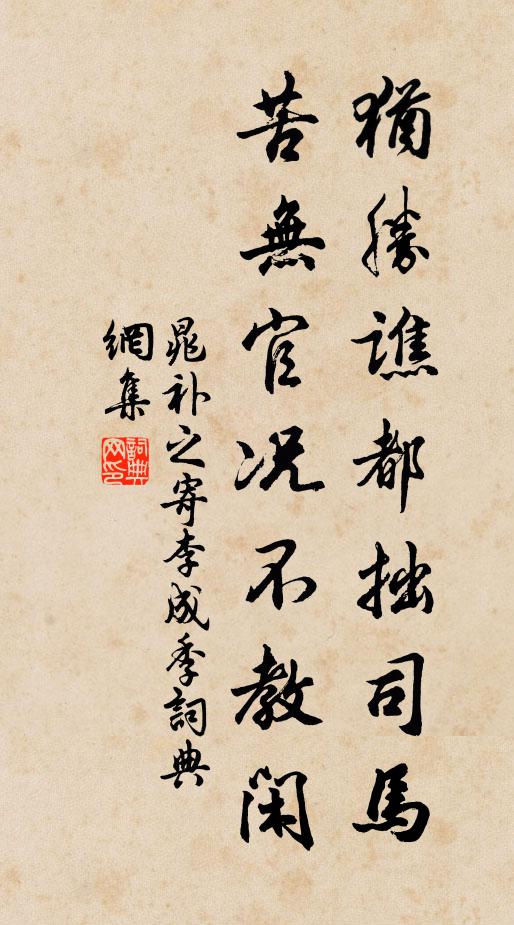 猶勝譙都拙司馬
苦無官况不教閑
晁补之寄李成季詞典
網集
詞典網印